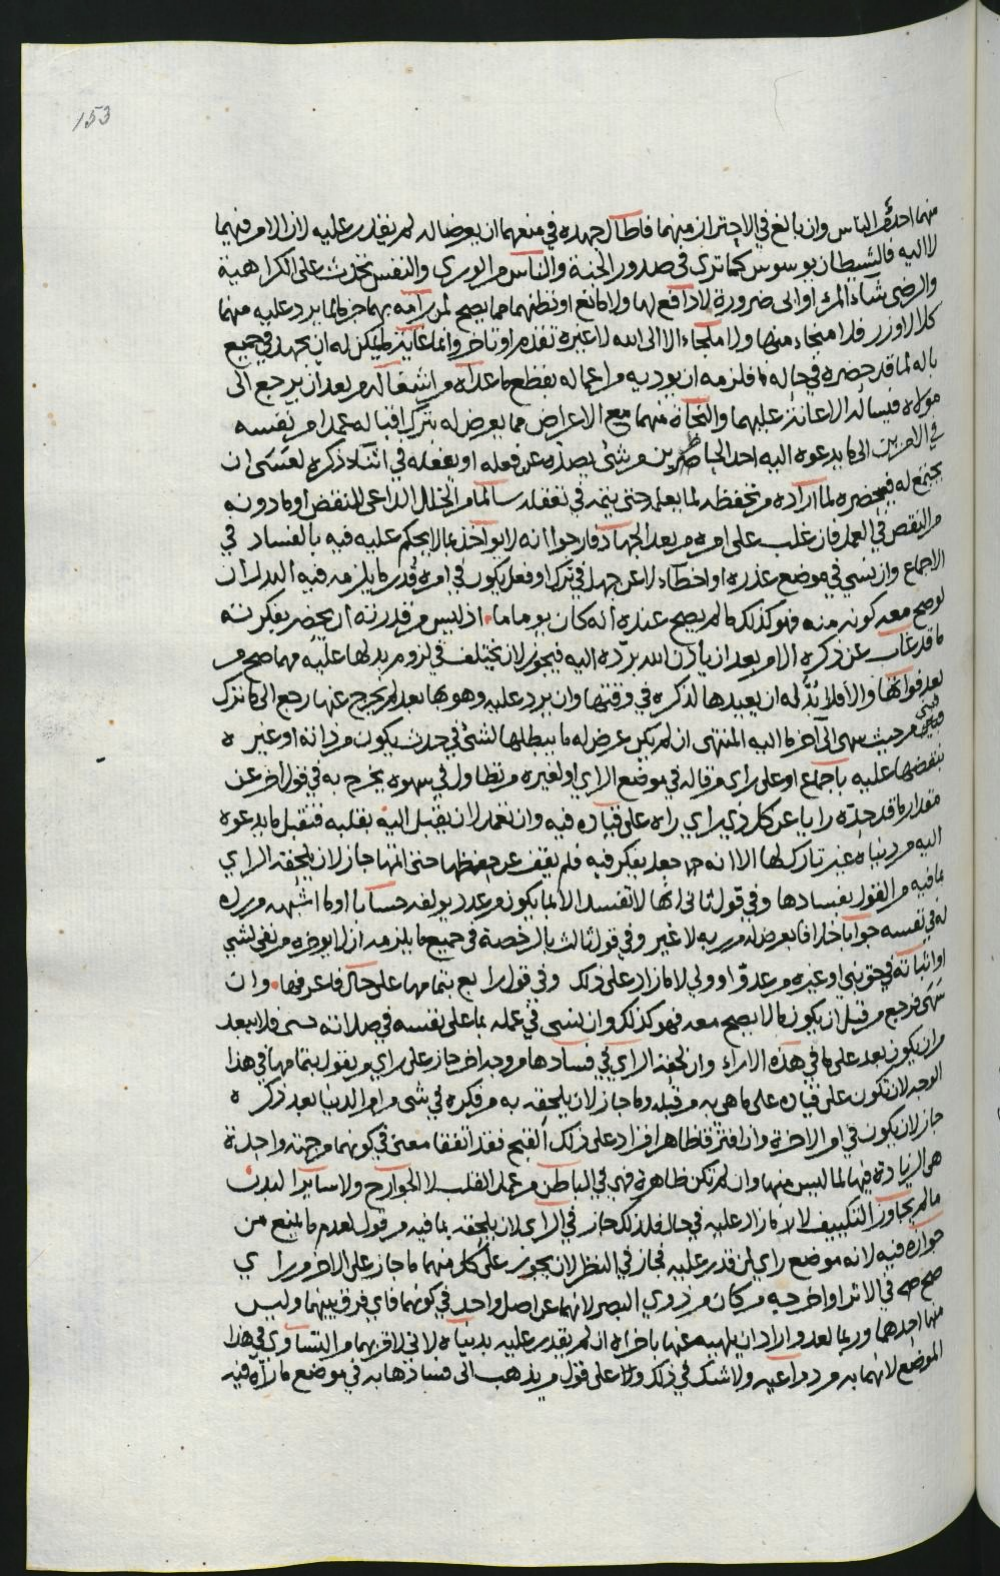 153
منهما احد من الناس وان بالغ في الاحتراز منهما فاطال جهده في منعهما ان يعرضا له لم يقدر عليه لان الامر فيهما
لا اليه فالشيطان يوسوس كما ترى في صدور الجنة والناس من الورى والنفس تحدث على الكراهية
والرضى شاء المرء او ابى ضرورة لا دافع لها ولا مانع او نطنهما مما يصح لمن رامه بهما جزما لما يرد عليه منهما
كلا لا وزر فلا منجاء منها ولا ملجاء الا الى الله لا غيره تقدم او تاخر وانما غاية ما يمكن له ان يجهد في جميع
باله لما قد حضره في حاله فالزمه ان يوديه من اعماله بقطع ما عداه من اشتغاله من بعد ان يرجع الى
مولاه فيساله الاعانة عليهما والنجاة منهما مع الاعراض عما يعرض له بترك اقباله عمدا من نفسه
في الامرين الى ما يدعوه اليه احد الخاطرين من شئ يصده عن فعله او يفعله في اثناء ذكره لعسى ان
يجتمع له فيحضره لما اراده من تحفظه لما يعمله حتى يتمه في تعقله سالما من الخلل الداعي للنقض او ما دونه
من النقص في العمل فان غلب على امره من بعد الجهاد فارجوا انه لا يواخذ بما لا يحكم عليه فيه بالفساد في
الاجماع وان نسي في موضع عذره او اخطاء لا عن جهل في ترك او فعل يكون في امره قدر ما يلزمه فيه البدل ان
لو صح معه كونه منه فهو كذلك ما لم يصح عنده انه كان يوما ما اذ ليس من قدرته ان يحضر بفكرته
ما قد غاب عن ذكره الا من بعد ان ياذن الله بردّه اليه فيجوز لان يختلف في لزوم بدلها عليه مهما صح من
بعد فواتها والا فلا بدّ له ان يعيدها لذكره في وقتها وان يرد عليه وهو بها بعد لم يخرج عنها رجع الى ما ترك
فبنى من حيث سهى الى آخر ما اليه المنتهى ان لم يكن عرض له ما يبطلها لشئ في حدث يكون من ذاته او غيره
بنقضها عليه باجماع او على راي من قاله في موضع الراي او لغيره من تطاول في سهوه يخرج به في قول آخر عن
مقدار ما قد حدّه رايا عن كل ذي راي راه على قياده فيه وان تعمد لان يقبل اليه بقلبه فتقبل ما يدعوه
اليه من دنياه غير تارك لها الا انه جعل يفكر فيه فلم يقف عن حفظها حتى اتمها جاز لان يلحقه الراي
بما فيه من القول بفسادها وفي قول ثاني انها لا تفسد الا بما يكون من عدد يولفه حسابا او ما اشبهه من رده
له في نفسه جوابا خلا ما يعرض له من ربه لا غير وفي قول ثالث بالرخصة في جميع ما يلزمه ان لا يوخره من نفي لشي
او اثباته في حق بني او غيره من عدوّ او ولي لا ما زاد على ذلك وفي قول رابع بتمامها على حال فاعرفها وان
سهى فرجع من قبل ان يكون ما لا يصح معه فهو كذلك وان نسي في عمله بما على نفسه في صلاته فلا يبعد
من ان يكون بعد على ما في هذه الاراء وان لحقه الراي في فسادها من وجه اخر جاز على راي من يقول بتمامها في هذا
الوجه لان تكون على قياده على ما هي به من قبله وما جاز لان يلحقه به من فكره في شئ من امر الدنيا بعد ذكره
جاز لان يكون في امر الاخرة وان افترقا ظاهرا فزاد على ذلك القبح فقد اتفقا معنى في كونهما من جهة واحدة
هي الزيادة فيها لما ليس منها وان لم تكن ظاهرة فهي في الباطن من عمل القلب لا الجوارح ولا ساير البدن
ما لم يجاوز التكييف لا لا ما زاد عليه في حال فلذلك جاز في الراي لان يلحقه بما فيه من قول لعدم ما يمنع من
جوازه فيه لانه موضع راي لمن قدر عليه فجاز في النظر لان يجوز على كل منهما ما جاز على الاخر من راي
صح في الاثر او اخرجه من كان من ذوي البصر لانهما عن اصل واحد في كونهما فاي فرق بينهما وليس
منها احدهما وربما لعدو اراد ان يلهيه عنها باخراه ان لم يقدر عليه بدنياه لاني لاقربهما من التساوي في هذا
الموضع لانهما به من دواعيه ولا شك في ذلك ولا على قول من يذهب الى فسادها به في موضع ما زاه فيه